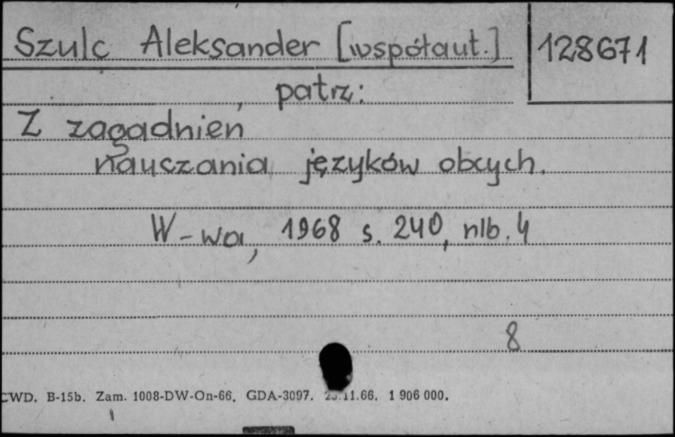 Szulc Aleksander [współaut.] 128671
patrz:
Z zagadnień
nauczania języków obcych.
W-wa, 1968 s. 240, nlb. 4
8
CWD. B-15b. Zam. 1008-DW-On-66. GDA-3097. 11.66. 1 906 000.